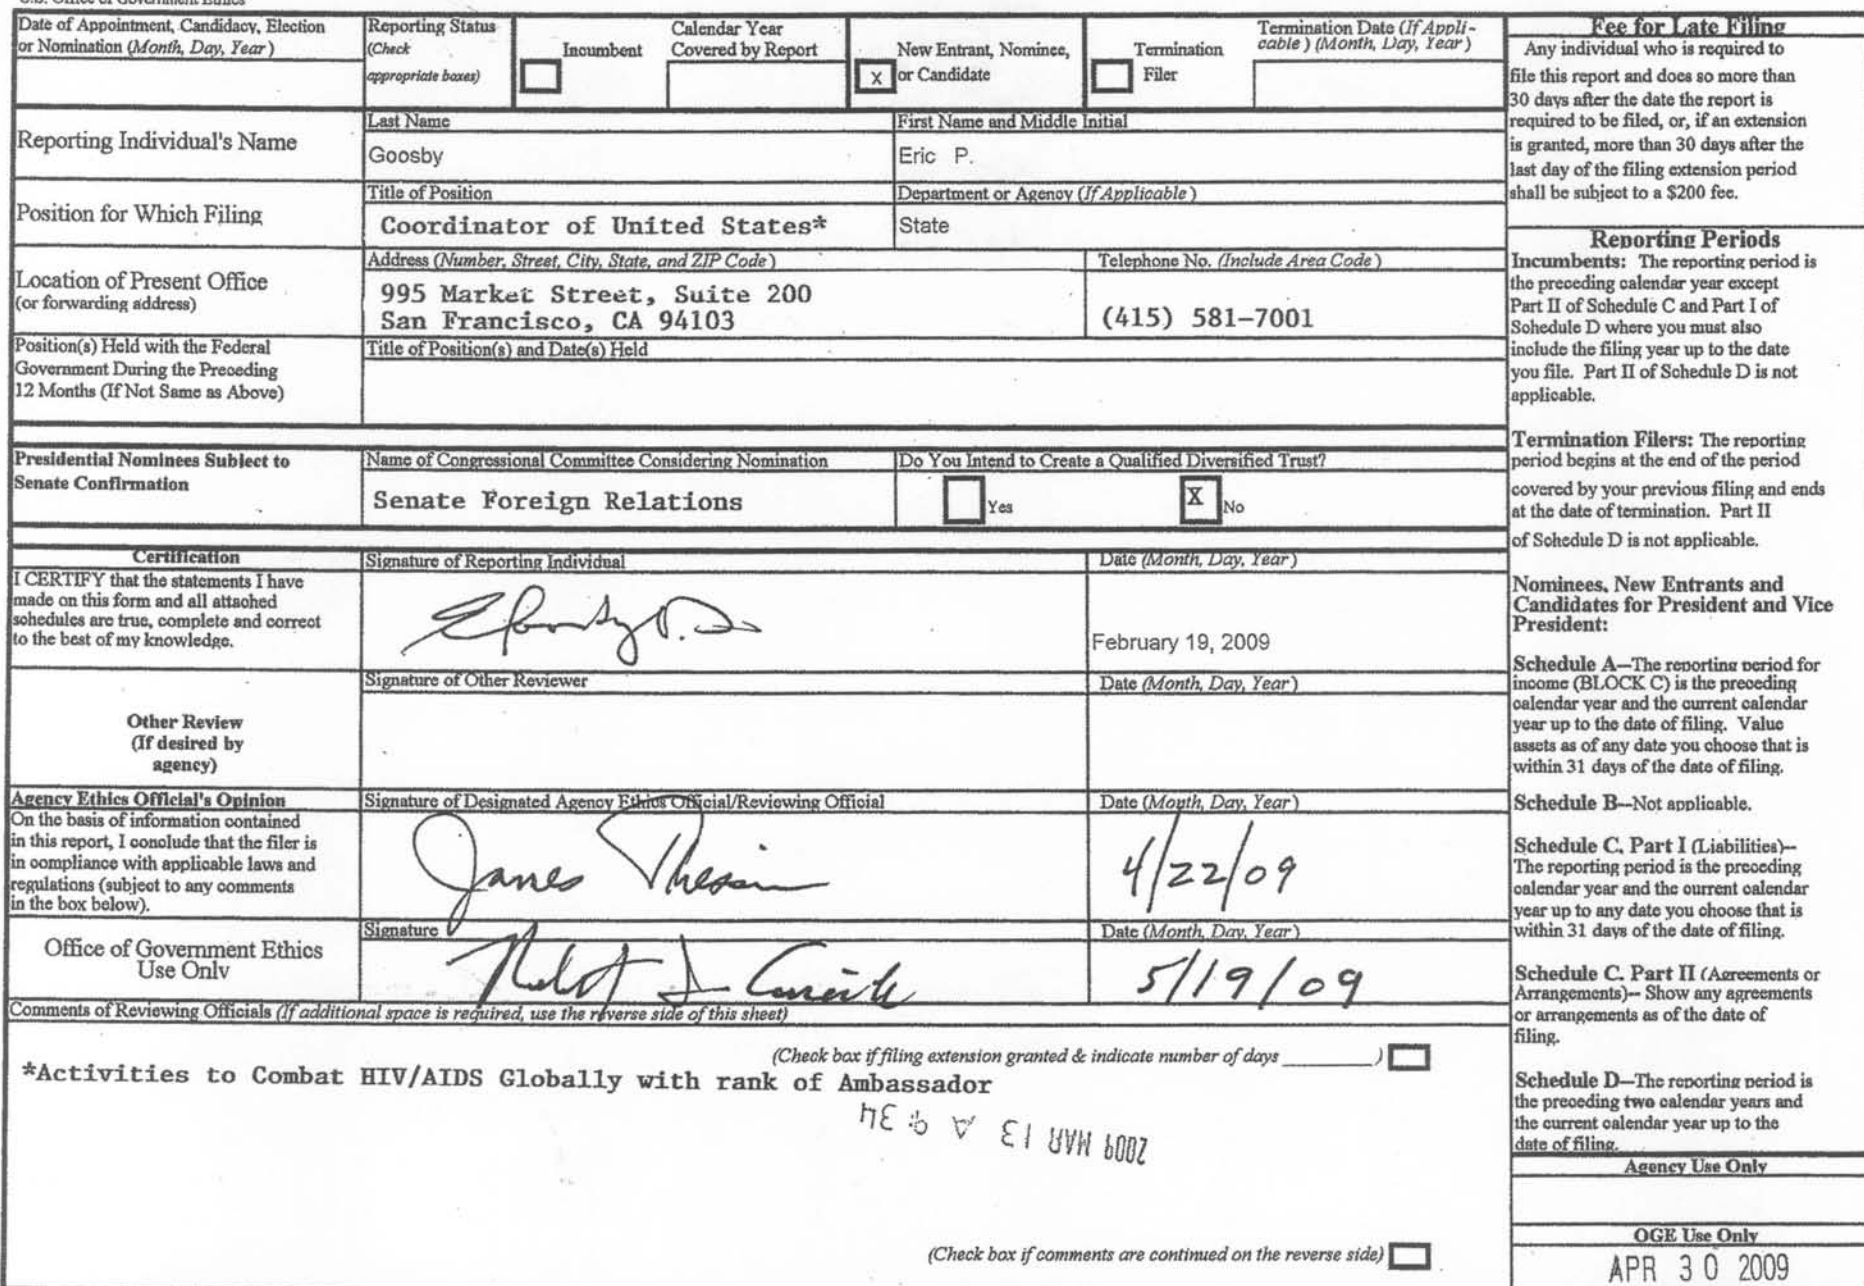 U.S. Office of Government Ethics
Date of Appointment, Candidacy, Election
or Nomination (Month, Day, Year)
Reporting Status
(Check
appropriate boxes)
Incumbent
Calendar Year
Covered by Report
X
New Entrant, Nominee,
or Candidate
Termination
Filer
Termination Date (If Appli-
cable) (Month, Day, Year)
Reporting Individual's Name
Last Name
Goosby
First Name and Middle Initial
Eric P.
Position for Which Filing
Title of Position
Coordinator of United States*
Department or Agency (If Applicable)
State
Location of Present Office
(or forwarding address)
Address (Number, Street, City, State, and ZIP Code)
995 Market Street, Suite 200
San Francisco, CA 94103
Telephone No. (Include Area Code)
(415) 581-7001
Position(s) Held with the Federal
Government During the Preceding
12 Months (If Not Same as Above)
Title of Position(s) and Date(s) Held
Presidential Nominees Subject to
Senate Confirmation
Name of Congressional Committee Considering Nomination
Senate Foreign Relations
Do You Intend to Create a Qualified Diversified Trust?
Yes
X
No
Certification
I CERTIFY that the statements I have
made on this form and all attached
schedules are true, complete and correct
to the best of my knowledge.
Signature of Reporting Individual
Date (Month, Day, Year)
February 19, 2009
Other Review
(If desired by
agency)
Signature of Other Reviewer
Date (Month, Day, Year)
Agency Ethics Official's Opinion
On the basis of information contained
in this report, I conclude that the filer is
in compliance with applicable laws and
regulations (subject to any comments
in the box below).
Signature of Designated Agency Ethics Official/Reviewing Official
James
Date (Month, Day, Year)
4/22/09
Office of Government Ethics
Use Only
Signature
Date (Month, Day, Year)
5/19/09
Comments of Reviewing Officials (If additional space is required, use the reverse side of this sheet)
(Check box if filing extension granted & indicate number of days ________)
*Activities to Combat HIV/AIDS Globally with rank of Ambassador
2009 MAR 13 A 9: 34
(Check box if comments are continued on the reverse side)
Fee for Late Filing
Any individual who is required to
file this report and does so more than
30 days after the date the report is
required to be filed, or, if an extension
is granted, more than 30 days after the
last day of the filing extension period
shall be subject to a $200 fee.
Reporting Periods
Incumbents: The reporting period is
the preceding calendar year except
Part II of Schedule C and Part I of
Schedule D where you must also
include the filing year up to the date
you file. Part II of Schedule D is not
applicable.
Termination Filers: The reporting
period begins at the end of the period
covered by your previous filing and ends
at the date of termination. Part II
of Schedule D is not applicable.
Nominees, New Entrants and
Candidates for President and Vice
President:
Schedule A--The reporting period for
income (BLOCK C) is the preceding
calendar year and the current calendar
year up to the date of filing. Value
assets as of any date you choose that is
within 31 days of the date of filing.
Schedule B--Not applicable.
Schedule C, Part I (Liabilities)--
The reporting period is the preceding
calendar year and the current calendar
year up to any date you choose that is
within 31 days of the date of filing.
Schedule C, Part II (Agreements or
Arrangements)-- Show any agreements
or arrangements as of the date of
filing.
Schedule D--The reporting period is
the preceding two calendar years and
the current calendar year up to the
date of filing.
Agency Use Only
OGE Use Only
APR 30 2009